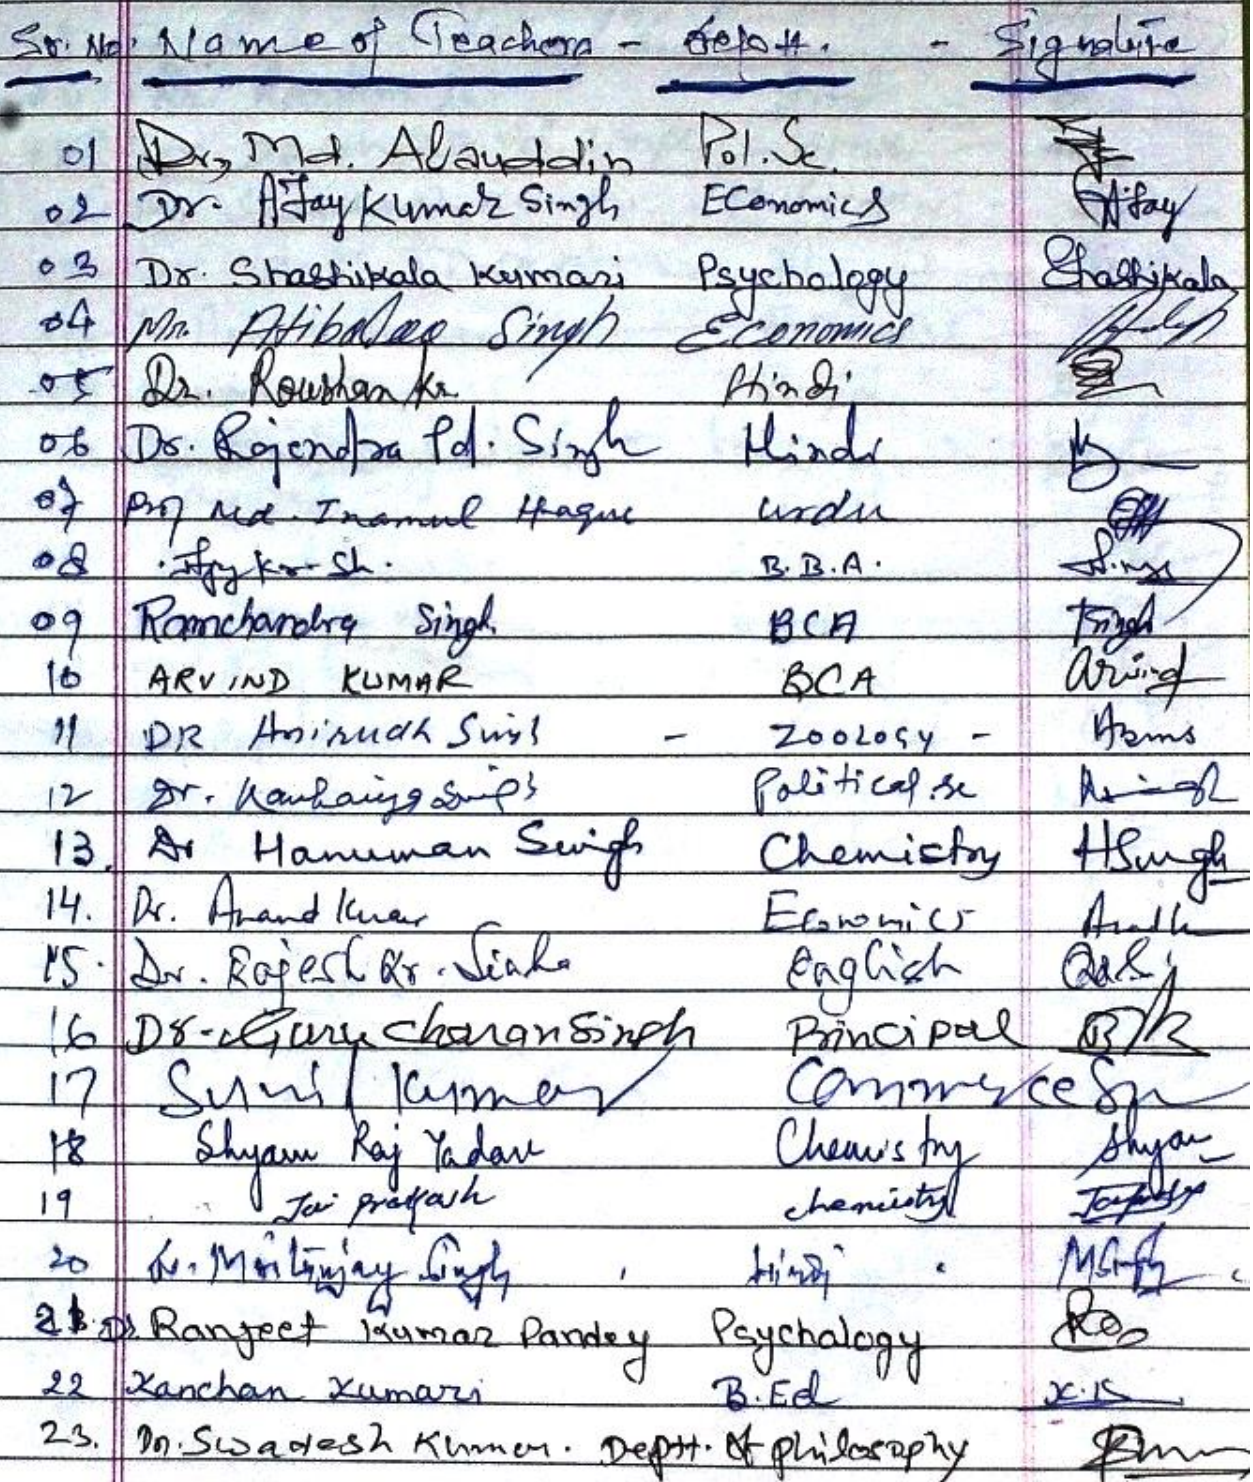 Sr. No. Name of Teachers - Deptt. - Signature
01 Dr. Md. Alauddin Pol. Sc.
02 Dr. Ajay Kumar Singh Economics Ajay
03 Dr. Shashikala Kumari Psychology Shashikala
04 Mr. Singh Economics
05 Dr. Roushan Kr. Hindi
06 Dr. Rajendra Pd. Singh Hindi
07 Prof Md. Inamul Haque Urdu
08 B.B.A.
09 Ramchandra Singh BCA
10 ARVIND KUMAR BCA Arvind
11 DR Anirudh Singh - Zoology -
12 Dr. Kanhaiya Singh Political.sc
13. Dr Hanuman Singh Chemistry HSingh
14. Dr. Anand Kumar Economics
15. Dr. Rajesh Kr. Sinha English
16 Dr. Guru Charan Singh Principal
17 Sunil Kumar Commerce
18 Shyam Raj Yadav Chemistry Shyam
19 Jai Prakash chemistry
20 Dr. Mritunjay Singh Hindi
21. Dr Ranjeet Kumar Pandey Psychology
22 Kanchan Kumari B.Ed K.K
23. Dr. Swadesh Kumar. Deptt. of philosophy